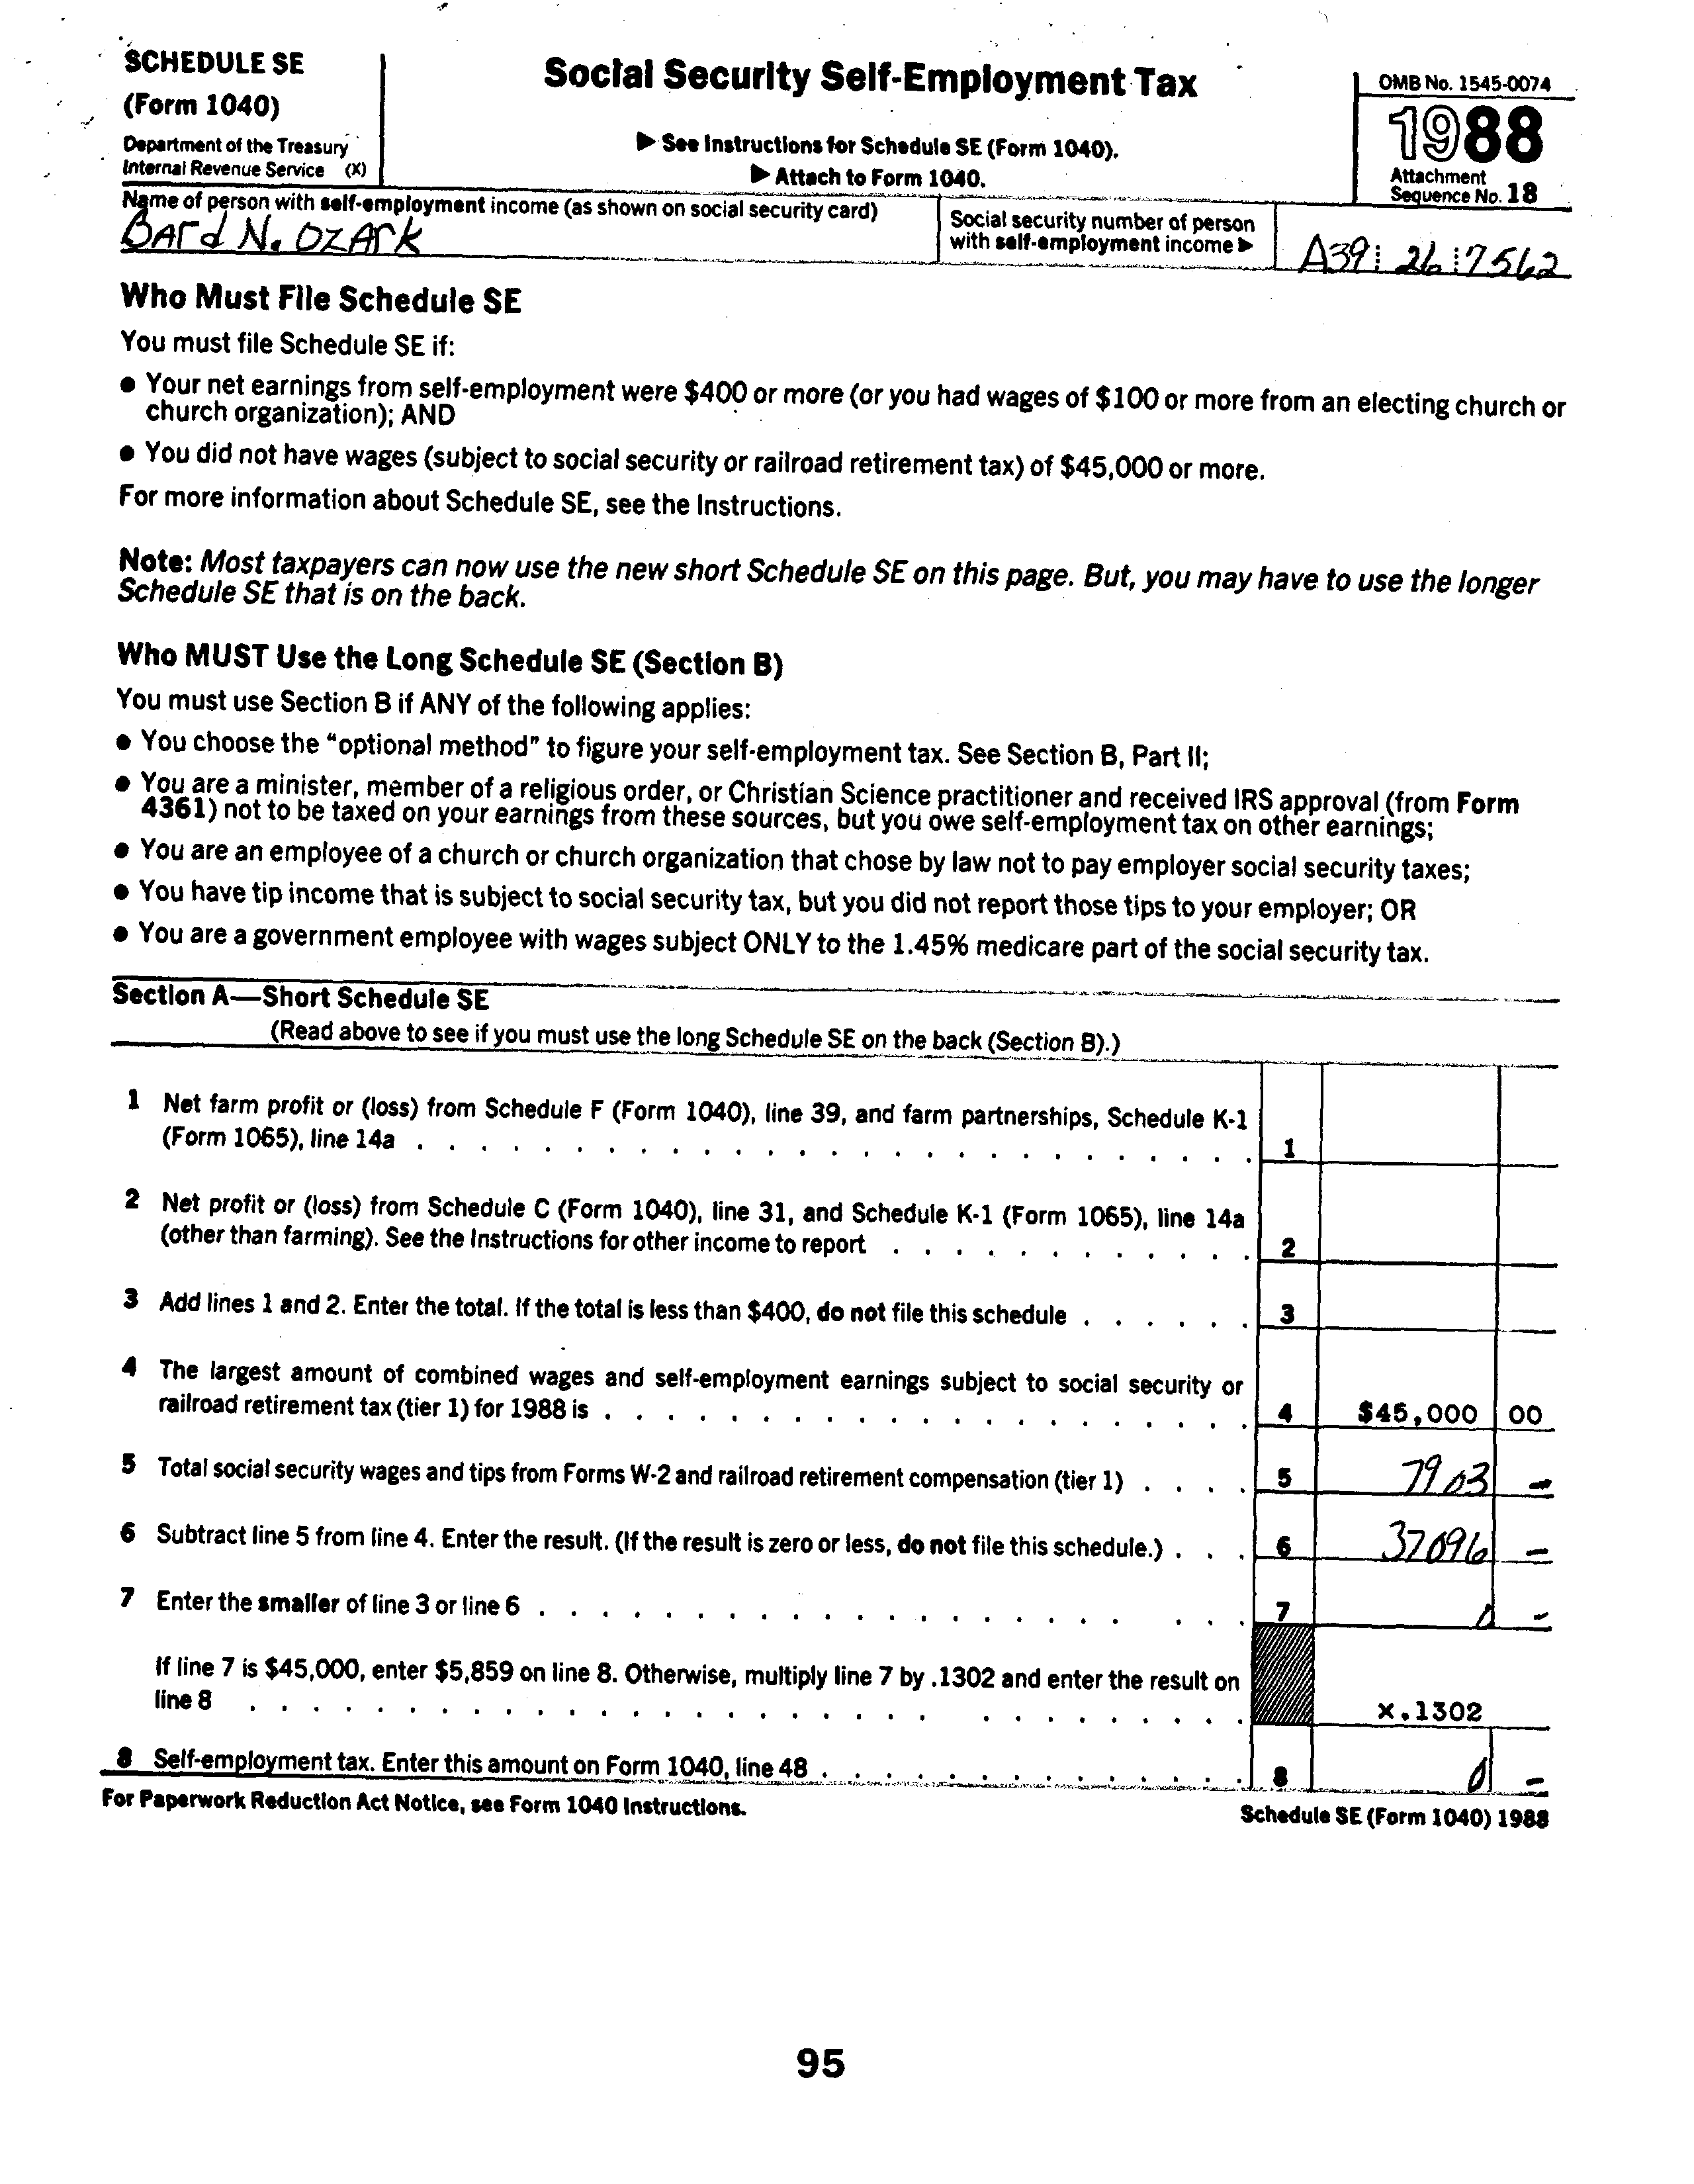 SCHEDULE SE
(Form 1040)
Department of the Treasury
Internal Revenue Service (X)
Social Security Self-Employment Tax
▶ See Instructions for Schedule SE (Form 1040).
▶ Attach to Form 1040.
OMB No. 1545-0074
1988
Attachment
Sequence No. 18
Name of person with self-employment income (as shown on social security card)
Bard N. Ozark
Social security number of person
with self-employment income ▶
A39 26 7562
Who Must File Schedule SE
You must file Schedule SE if:
● Your net earnings from self-employment were $400 or more (or you had wages of $100 or more from an electing church or
church organization); AND
● You did not have wages (subject to social security or railroad retirement tax) of $45,000 or more.
For more information about Schedule SE, see the Instructions.
Note: Most taxpayers can now use the new short Schedule SE on this page. But, you may have to use the longer
Schedule SE that is on the back.
Who MUST Use the Long Schedule SE (Section B)
You must use Section B if ANY of the following applies:
● You choose the “optional method” to figure your self-employment tax. See Section B, Part II;
● You are a minister, member of a religious order, or Christian Science practitioner and received IRS approval (from Form
4361) not to be taxed on your earnings from these sources, but you owe self-employment tax on other earnings;
● You are an employee of a church or church organization that chose by law not to pay employer social security taxes;
● You have tip income that is subject to social security tax, but you did not report those tips to your employer; OR
● You are a government employee with wages subject ONLY to the 1.45% medicare part of the social security tax.
Section A—Short Schedule SE
(Read above to see if you must use the long Schedule SE on the back (Section B).)
1 Net farm profit or (loss) from Schedule F (Form 1040), line 39, and farm partnerships, Schedule K-1
(Form 1065), line 14a . . . . . . . . . . . . . . . . . . . . . . . . . . . 1
2 Net profit or (loss) from Schedule C (Form 1040), line 31, and Schedule K-1 (Form 1065), line 14a
(other than farming). See the Instructions for other income to report . . . . . . . . . . . . 2
3 Add lines 1 and 2. Enter the total. If the total is less than $400, do not file this schedule . . . . . . 3
4 The largest amount of combined wages and self-employment earnings subject to social security or
railroad retirement tax (tier 1) for 1988 is . . . . . . . . . . . . . . . . . . . . . 4 $45,000 00
5 Total social security wages and tips from Forms W-2 and railroad retirement compensation (tier 1) . . . . 5 7903 —
6 Subtract line 5 from line 4. Enter the result. (If the result is zero or less, do not file this schedule.) . . . 6 37096 —
7 Enter the smaller of line 3 or line 6 . . . . . . . . . . . . . . . . . . . . . . 7 0 —
If line 7 is $45,000, enter $5,859 on line 8. Otherwise, multiply line 7 by .1302 and enter the result on
line 8 . . . . . . . . . . . . . . . . . . . . . . . . . . . . . . . x.1302
8 Self-employment tax. Enter this amount on Form 1040, line 48 . . . . . . . . . . . . . . 8 0 —
For Paperwork Reduction Act Notice, see Form 1040 Instructions.
Schedule SE (Form 1040) 1988
95